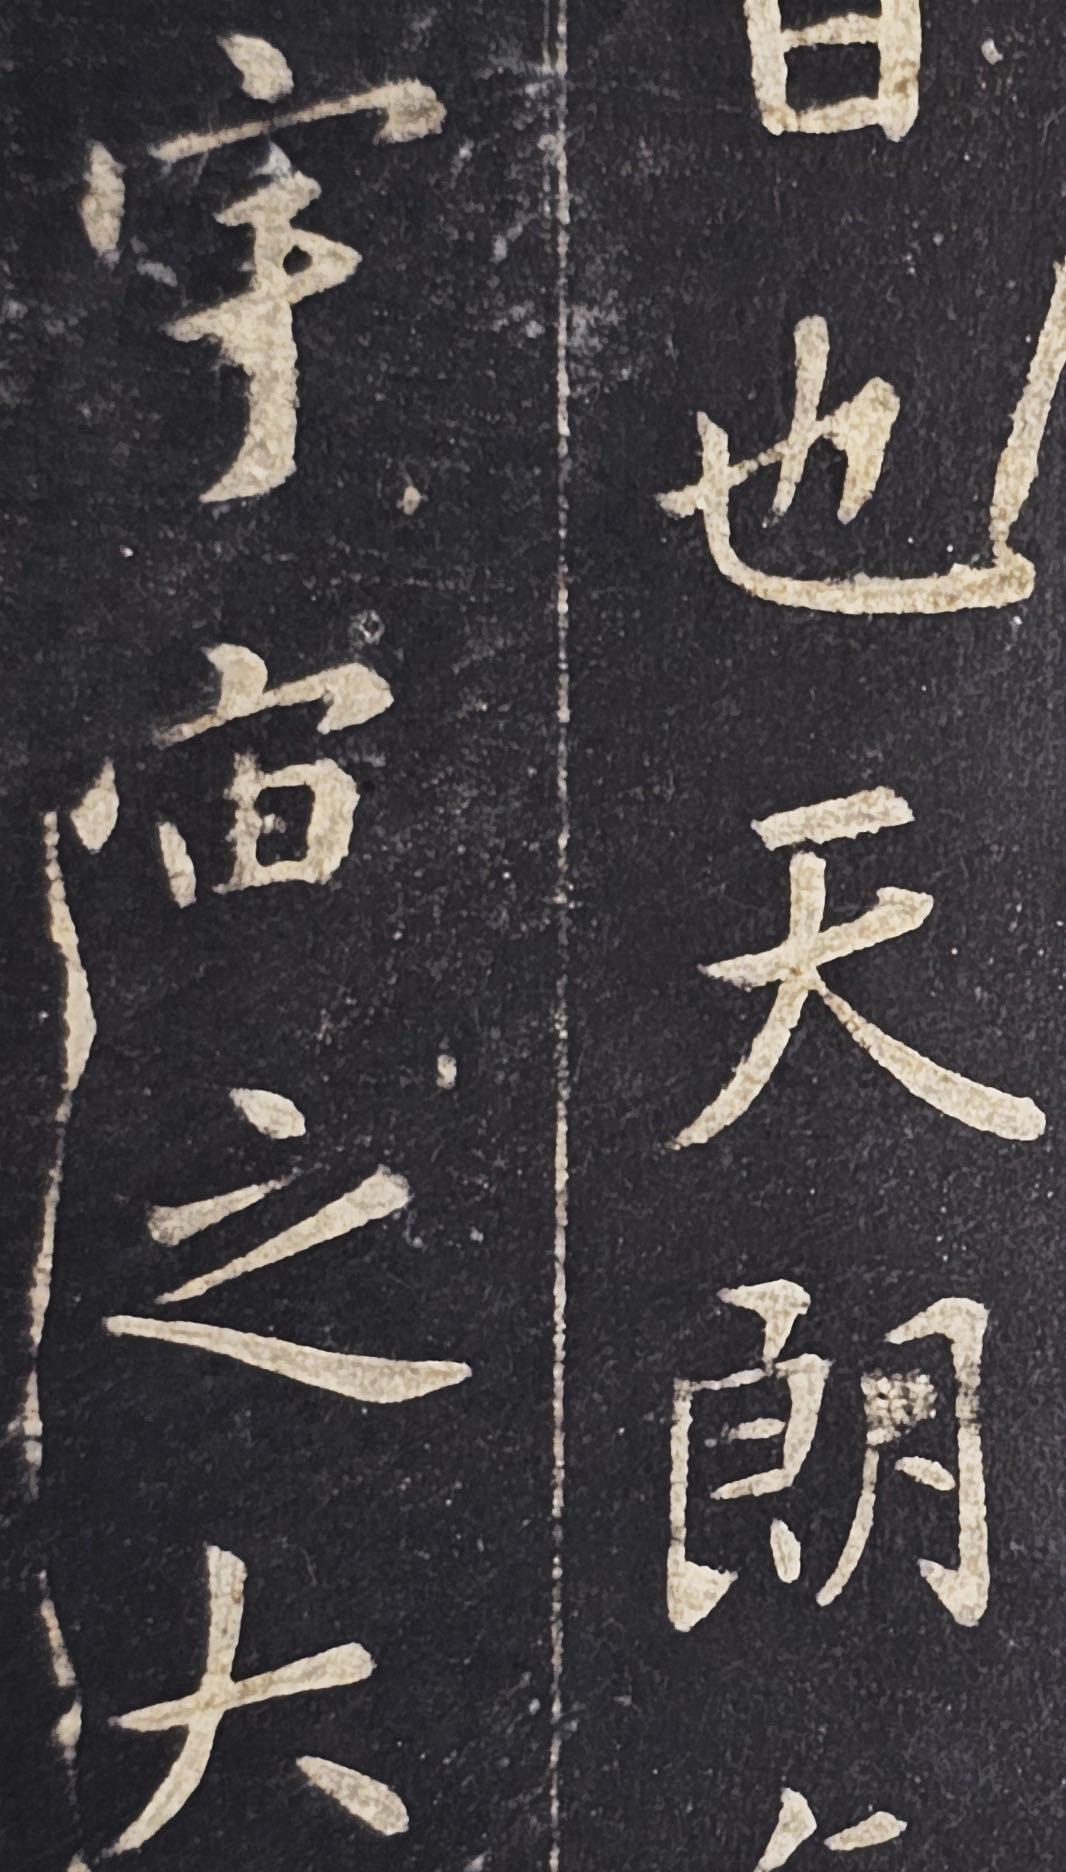 日也天朗
宇宙之大